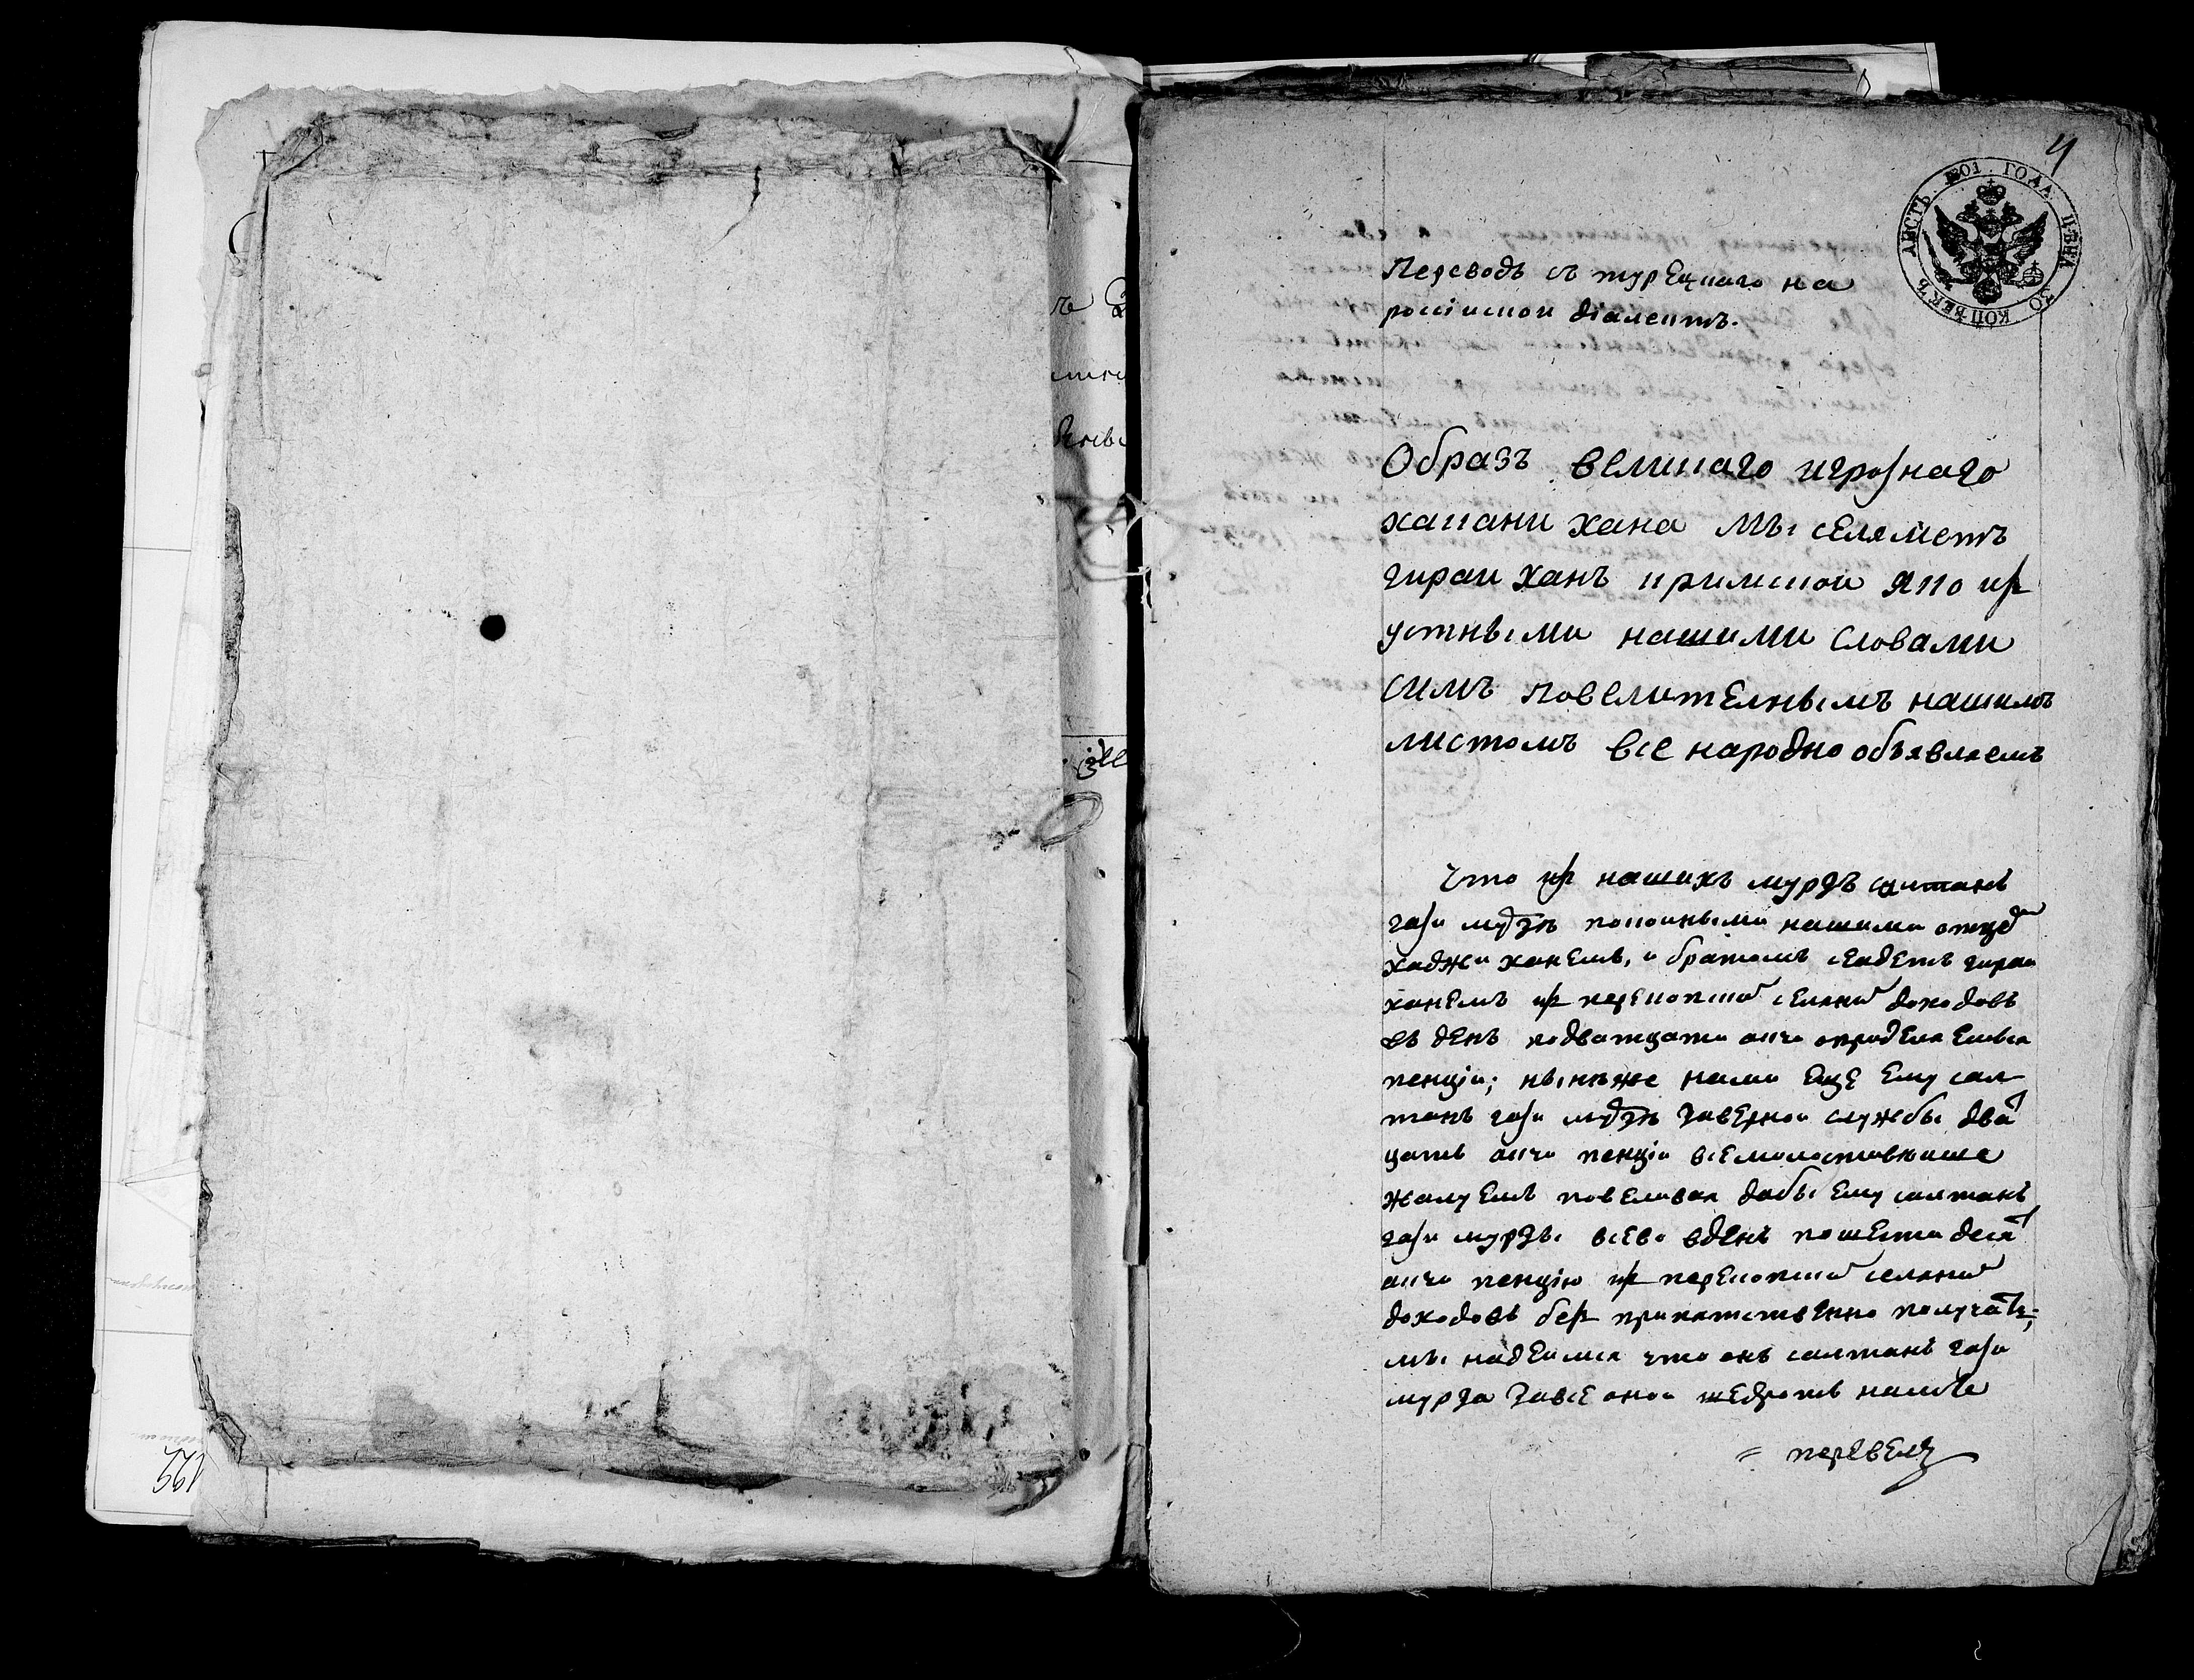 4
ЛИСТЪ 1801 ГОДА ЦѢНА 30 КОПѢЕКЪ
Переводъ съ турецкаго на
россiискои дiалектъ.
Образъ великаго игрознаго
хакани хана мы селяметъ
гираи ханъ кримскои яко из
устными нашими словами
симъ повелителнымъ нашимъ
листомъ все народно объявляемъ
что из нашихъ мурзъ салтанъ
гази мурзѣ покоиными нашими отцем
хаджи ханемъ, и братомъ сеадетъ гираи
ханемъ из перекопскои соленои доходовъ
въ день подватцати акчи определяемыя
пенцiи; нынѣже нами еще ему сал
танъ гази мурзѣ завернои службы дват
цать акчи пенцiи всемилостивѣише
жалуемъ повеливая дабы ему салтанъ
гази мурзы всево вдень пошести десят
акчи пенцiю из перекопскои соленои
доходовъ без припятственно получать;
мы надеимся что онъ салтанъ гази
мурза завсе онои щедротъ нашѣе
перевелъ